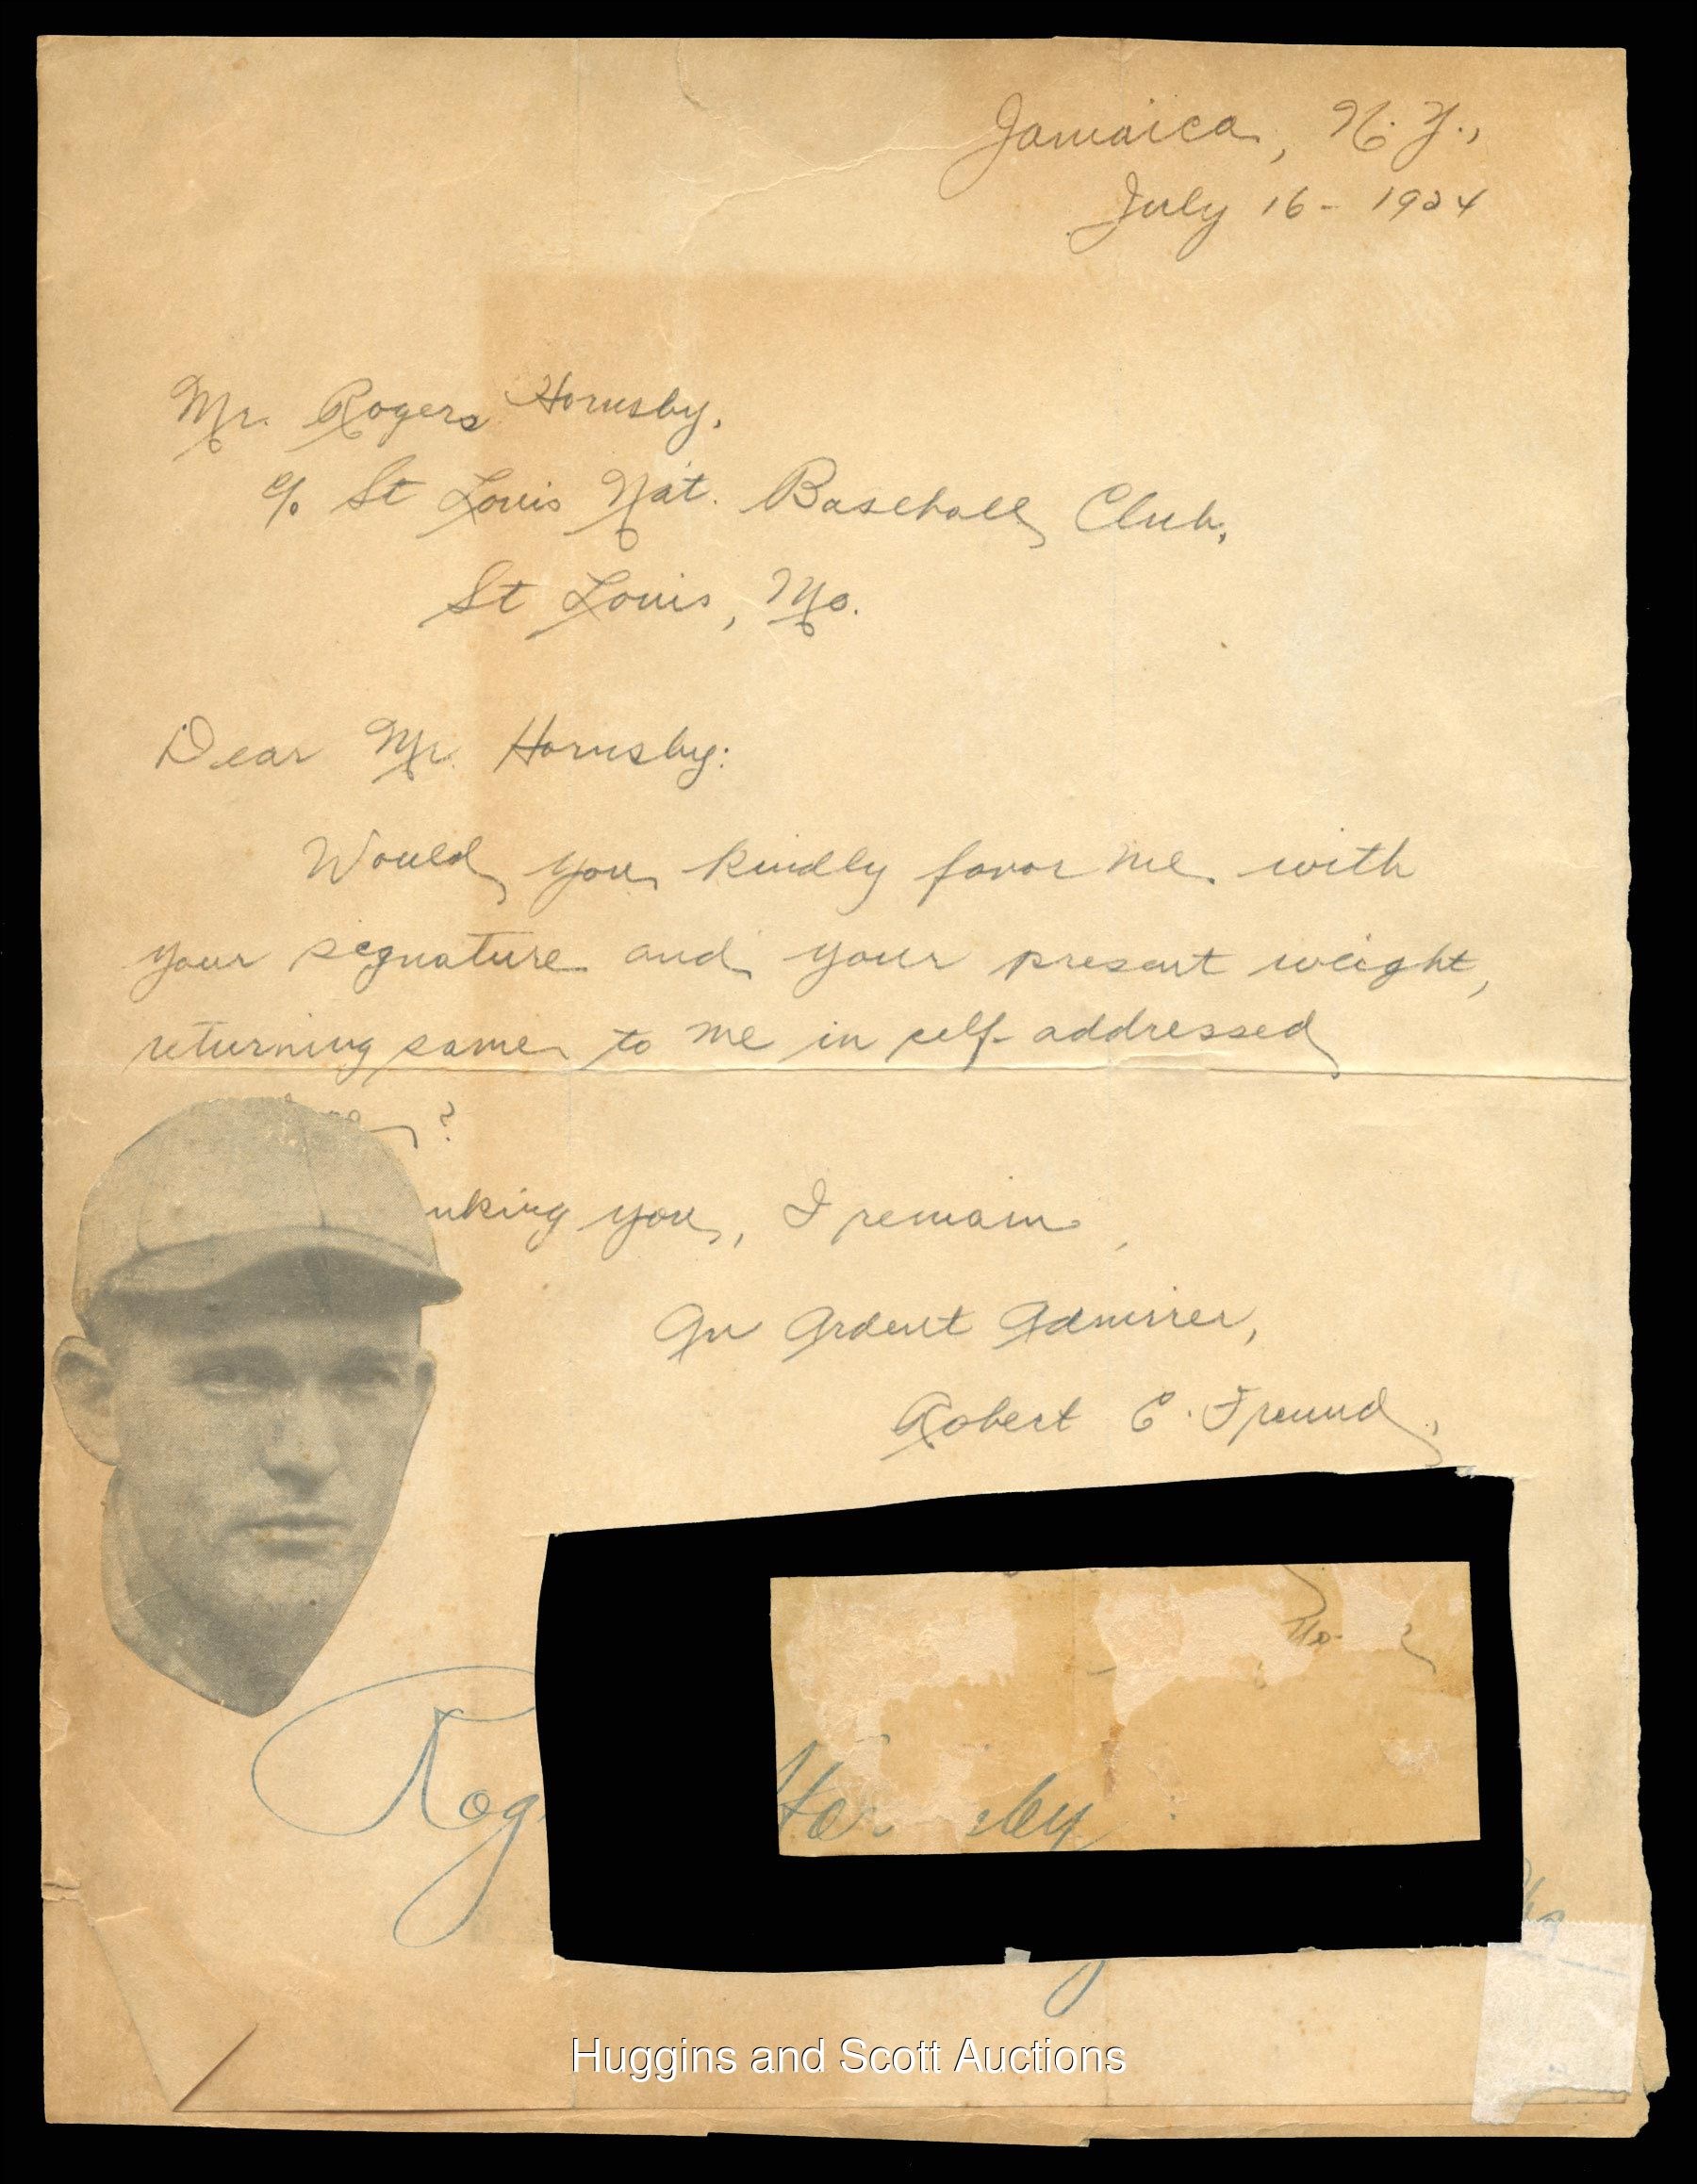 Jamaica, N.Y.,
July 16 - 1924
Mr. Rogers Hornsby,
c/o St Louis Nat. Baseball Club,
St Louis, Mo.
Dear Mr. Hornsby:
Would you kindly favor me with
your signature and your present weight,
returning same to me in self-addressed
?
nking you, I remain,
An Ardent Admirer,
Robert E. Freund,
Rog
Ho sby
Huggins and Scott Auctions